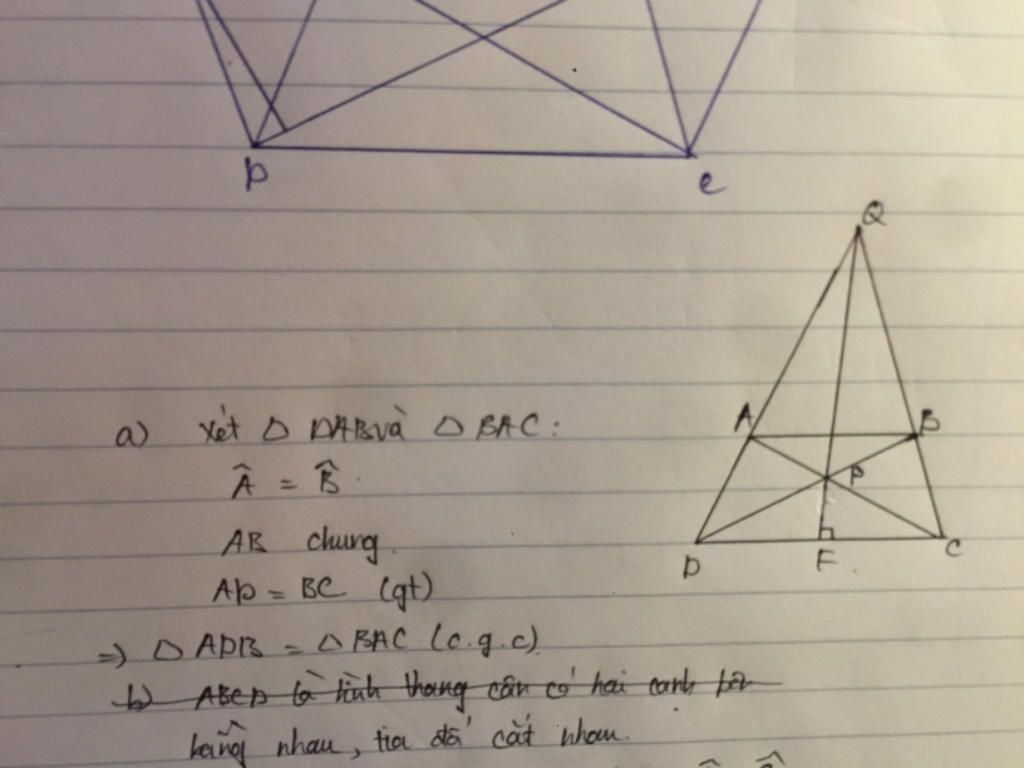 D
C
Q
A
B
P
D
F
C
a) Xét △ DAB và △ BAC :
Â = B̂
AB chung
AD = BC (gt)
=> △ ADB = △ BAC (c.g.c)
b) ABCD là hình thang cân có hai cạnh bên
bằng nhau, tia đó cắt nhau.